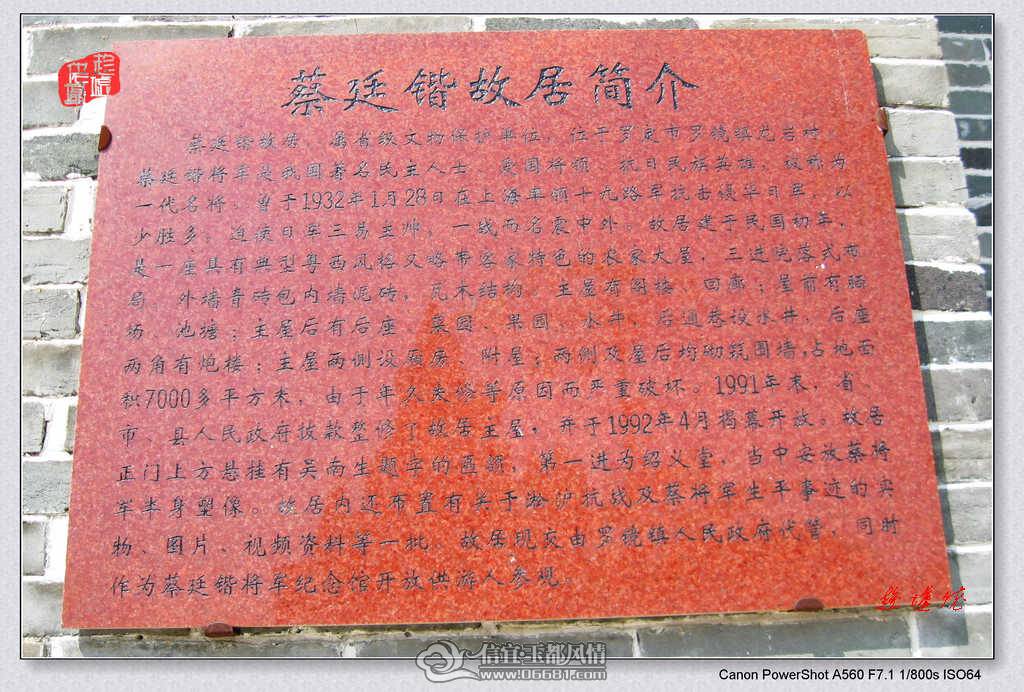 蔡廷锴故居简介
蔡廷锴故居，属省级文物保护单位，位于罗定市罗镜镇龙岩村。
蔡廷锴将军是我国著名民主人士、爱国将领、抗日民族英雄，被称为
一代名将。曾于1932年1月28日在上海率领十九路军抗击侵华日军，以
少胜多，迫使日军三易主帅，一战而名震中外。故居建于民国初年，
是一座具有典型粤西风格又略带客家特色的农家大屋，三进院落式布
局，外墙青砖包内墙泥砖，瓦木结构。主屋有阁楼、回廊；屋前有晒
场、池塘；主屋后有后座、菜园、果园、水井，后通巷设水井，后座
两角有炮楼；主屋两侧设厢房、附屋；两侧及屋后均砌筑围墙，占地面
积7000多平方米。由于年久失修等原因而严重破坏。1991年末，省、
市、县人民政府拨款整修了故居主屋，并于1992年4月揭幕开放。故居
正门上方悬挂有吴南生题字的匾额，第一进为绍义堂，当中安放蔡将
军半身塑像。故居内还布置有关于淞沪抗战及蔡将军生平事迹的实
物、图片、视频资料等一批。故居现交由罗镜镇人民政府代管，同时
作为蔡廷锴将军纪念馆开放供游人参观。
信宜玉都风情
www.06681.com
Canon PowerShot A560 F7.1 1/800s ISO64